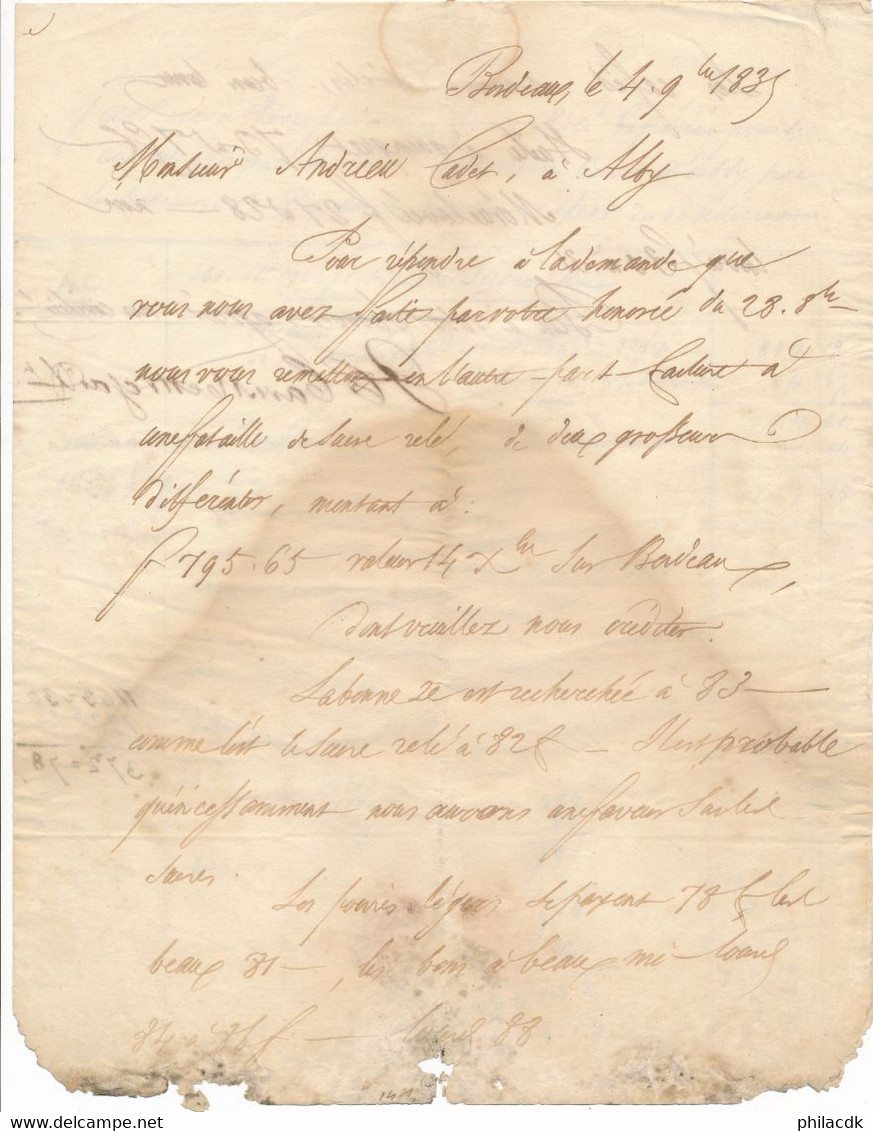 Bordeaux, le 4. 9bre 1835
Monsieur Andrieu Cadet, à Alby
Pour répondre à la demande que
vous nous avez faite par votre honorée du 28. 8bre
nous vous remettons en l'autre part facture à
une futaille de sucre relé, de deux grosseurs
différentes, montant à:
f 795.65 valeur 14 Xbre sur Bordeaux,
dont veuillez nous créditer.
La bonne 2e est recherchée à 83 —
comme l'est le sucre relé à 82f — Il est probable
qu'incessamment nous aurons une faveur sur les
sucres.
Les poivres légers se payent 78 f les
beaux 81 —, les bons à beaux mi-lourds
84 à 86 f — lourds 88
philacdk